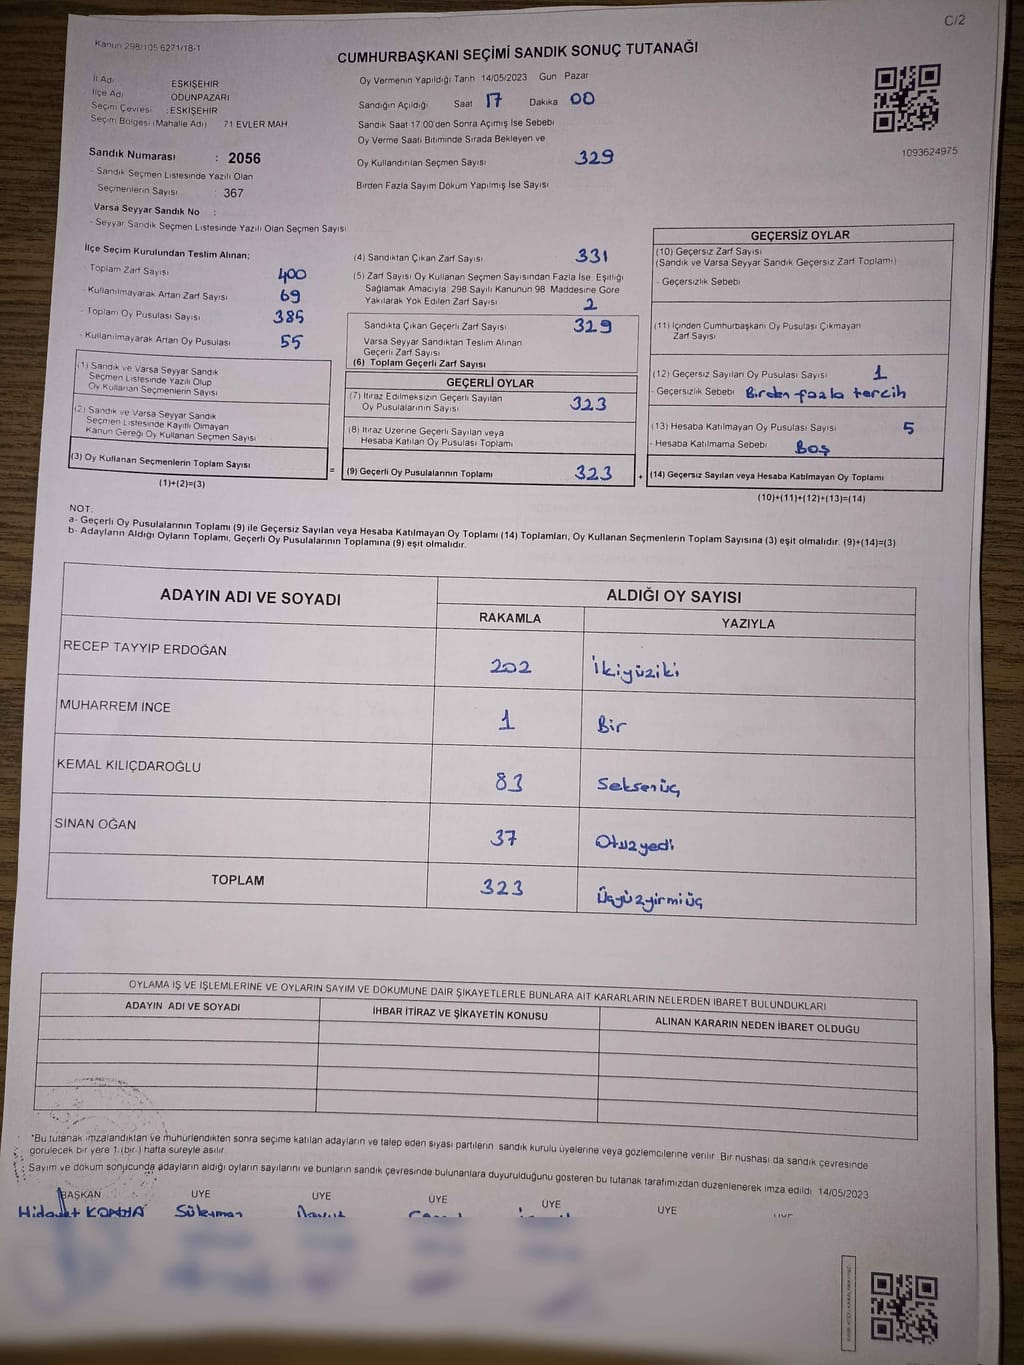 C/2
Kanun 298/105 6271/18-1
CUMHURBAŞKANI SEÇİMİ SANDIK SONUÇ TUTANAĞI
İl Adı ESKİŞEHİR
İlçe Adı ODUNPAZARI
Seçim Çevresi : ESKİŞEHİR
Seçim Bölgesi (Mahalle Adı) 71 EVLER MAH
Sandık Numarası : 2056
- Sandık Seçmen Listesinde Yazılı Olan
Seçmenlerin Sayısı : 367
Varsa Seyyar Sandık No :
- Seyyar Sandık Seçmen Listesinde Yazılı Olan Seçmen Sayısı
Oy Vermenin Yapıldığı Tarih 14/05/2023 Gün Pazar
Sandığın Açıldığı Saat 17 Dakika 00
Sandık Saat 17 00'den Sonra Açımış İse Sebebi
Oy Verme Saati Bitiminde Sırada Bekleyen ve
Oy Kullandırılan Seçmen Sayısı 329
Birden Fazla Sayım Döküm Yapılmış İse Sayısı
1093624975
İlçe Seçim Kurulundan Teslim Alınan;
- Toplam Zarf Sayısı 400
- Kullanılmayarak Artan Zarf Sayısı 69
- Toplam Oy Pusulası Sayısı 385
- Kullanılmayarak Artan Oy Pusulası 55
(1) Sandık ve Varsa Seyyar Sandık
Seçmen Listesinde Yazılı Olup
Oy Kullanan Seçmenlerin Sayısı
(2) Sandık ve Varsa Seyyar Sandık
Seçmen Listesinde Kayıtlı Olmayan
Kanun Gereği Oy Kullanan Seçmen Sayısı
(3) Oy Kullanan Seçmenlerin Toplam Sayısı
(1)+(2)=(3)
(4) Sandıktan Çıkan Zarf Sayısı 331
(5) Zarf Sayısı Oy Kullanan Seçmen Sayısından Fazla İse Eşitliği
Sağlamak Amacıyla 298 Sayılı Kanunun 98 Maddesine Göre
Yakılarak Yok Edilen Zarf Sayısı 2
Sandıkta Çıkan Geçerli Zarf Sayısı 329
Varsa Seyyar Sandıktan Teslim Alınan
Geçerli Zarf Sayısı
(6) Toplam Geçerli Zarf Sayısı
GEÇERLİ OYLAR
(7) İtiraz Edilmeksizin Geçerli Sayılan
Oy Pusulalarının Sayısı 323
(8) İtiraz Üzerine Geçerli Sayılan veya
Hesaba Katılan Oy Pusulası Toplamı
= (9) Geçerli Oy Pusulalarının Toplamı 323 +
GEÇERSİZ OYLAR
(10) Geçersiz Zarf Sayısı
(Sandık ve Varsa Seyyar Sandık Geçersiz Zarf Toplamı)
- Geçersizlik Sebebi
(11) İçinden Cumhurbaşkanı Oy Pusulası Çıkmayan
Zarf Sayısı
(12) Geçersiz Sayılan Oy Pusulası Sayısı 1
- Geçersizlik Sebebi Birden fazla tercih
(13) Hesaba Katılmayan Oy Pusulası Sayısı 5
- Hesaba Katılmama Sebebi Boş
(14) Geçersiz Sayılan veya Hesaba Katılmayan Oy Toplamı
(10)+(11)+(12)+(13)=(14)
NOT:
a- Geçerli Oy Pusulalarının Toplamı (9) ile Geçersiz Sayılan veya Hesaba Katılmayan Oy Toplamı (14) Toplamları, Oy Kullanan Seçmenlerin Toplam Sayısına (3) eşit olmalıdır. (9)+(14)=(3)
b- Adayların Aldığı Oyların Toplamı, Geçerli Oy Pusulalarının Toplamına (9) eşit olmalıdır.
ADAYIN ADI VE SOYADI
ALDIĞI OY SAYISI
RAKAMLA YAZIYLA
RECEP TAYYİP ERDOĞAN 202 İkiyüziki
MUHARREM İNCE 1 Bir
KEMAL KILIÇDAROĞLU 83 Seksenüç
SİNAN OĞAN 37 Otuzyedi
TOPLAM 323 Üçyüzyirmiüç
OYLAMA İŞ VE İŞLEMLERİNE VE OYLARIN SAYIM VE DÖKÜMÜNE DAİR ŞİKAYETLERLE BUNLARA AİT KARARLARIN NELERDEN İBARET BULUNDUKLARI
ADAYIN ADI VE SOYADI İHBAR İTİRAZ VE ŞİKAYETİN KONUSU ALINAN KARARIN NEDEN İBARET OLDUĞU
*Bu tutanak imzalandıktan ve mühürlendikten sonra seçime katılan adayların ve talep eden siyasi partilerin sandık kurulu üyelerine veya gözlemcilerine verilir. Bir nüshası da sandık çevresinde
görülecek bir yere 1 (bir ) hafta süreyle asılır.
Sayım ve döküm sonucunda adayların aldığı oyların sayılarını ve bunların sandık çevresinde bulunanlara duyurulduğunu gösteren bu tutanak tarafımızdan düzenlenerek imza edildi 14/05/2023
BAŞKAN ÜYE ÜYE ÜYE ÜYE ÜYE ÜYE
Hidayet Süleyman